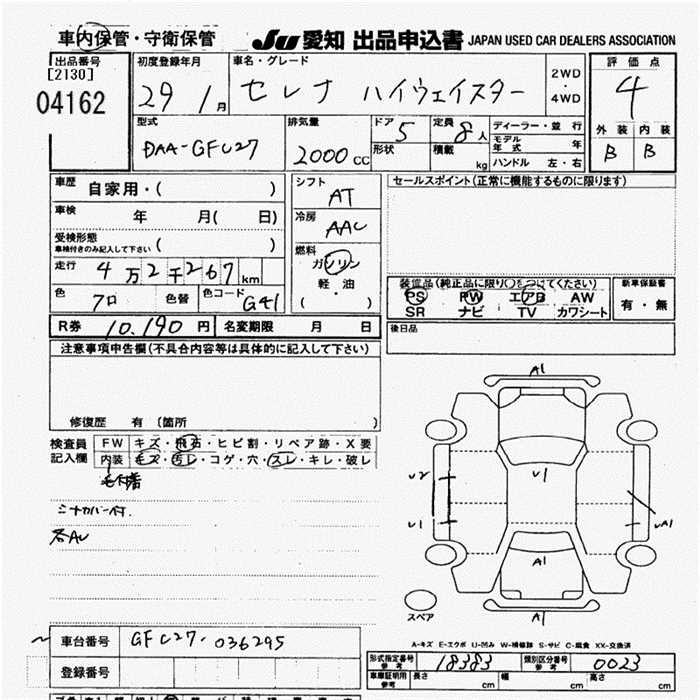 車内保管・守衛保管
JU 愛知 出品申込書 JAPAN USED CAR DEALERS ASSOCIATION
出品番号
[2130]
04162
初度登録年月
29 1月
車名・グレード
セレナ ハイウェイスター
2WD
・
4WD
評価点
4
外装 内装
B B
型式
DAA-GFC27
排気量
2000 CC
ドア 5
形状
定員 8人
積載 kg
ディーラー・並行
モデル年式 年
ハンドル 左・右
車歴 自家用・( )
車検 年 月( 日)
受検形態
車検付きのみ記入して下さい ( )
走行 4万2千267km
色 クロ 色替 色コード G41
R券 10,190円 名変期限 月 日
シフト
AT
冷房
AAC
燃料
ガソリン
軽・油
( )
セールスポイント(正常に機能するものに限ります)
装備品(純正品に限り○をつけてください)
PS PW エアB AW
SR ナビ TV カワシート
新車保証書
有・無
後日品
注意事項申告欄(不具合内容等は具体的に記入して下さい)
修復歴 有 〔箇所 )
検査員
記入欄
FW キズ・飛石・ヒビ割・リペア跡・X要
内装 キズ・汚レ・コゲ・穴・スレ・キレ・破レ
シートカバー付.
各AU
A1
U2
U1
U1
UA1
A1
A1
スペア
A-キズ E-エクボ U-凹み W-補修跡 S-サビ C-腐食 XX-交換済
車台番号 GFC27-036295
登録番号
形式指定番号
参考
18383
類別区分番号
参考
0023
車庫証明用
参考
長さ cm 幅 cm 高さ cm